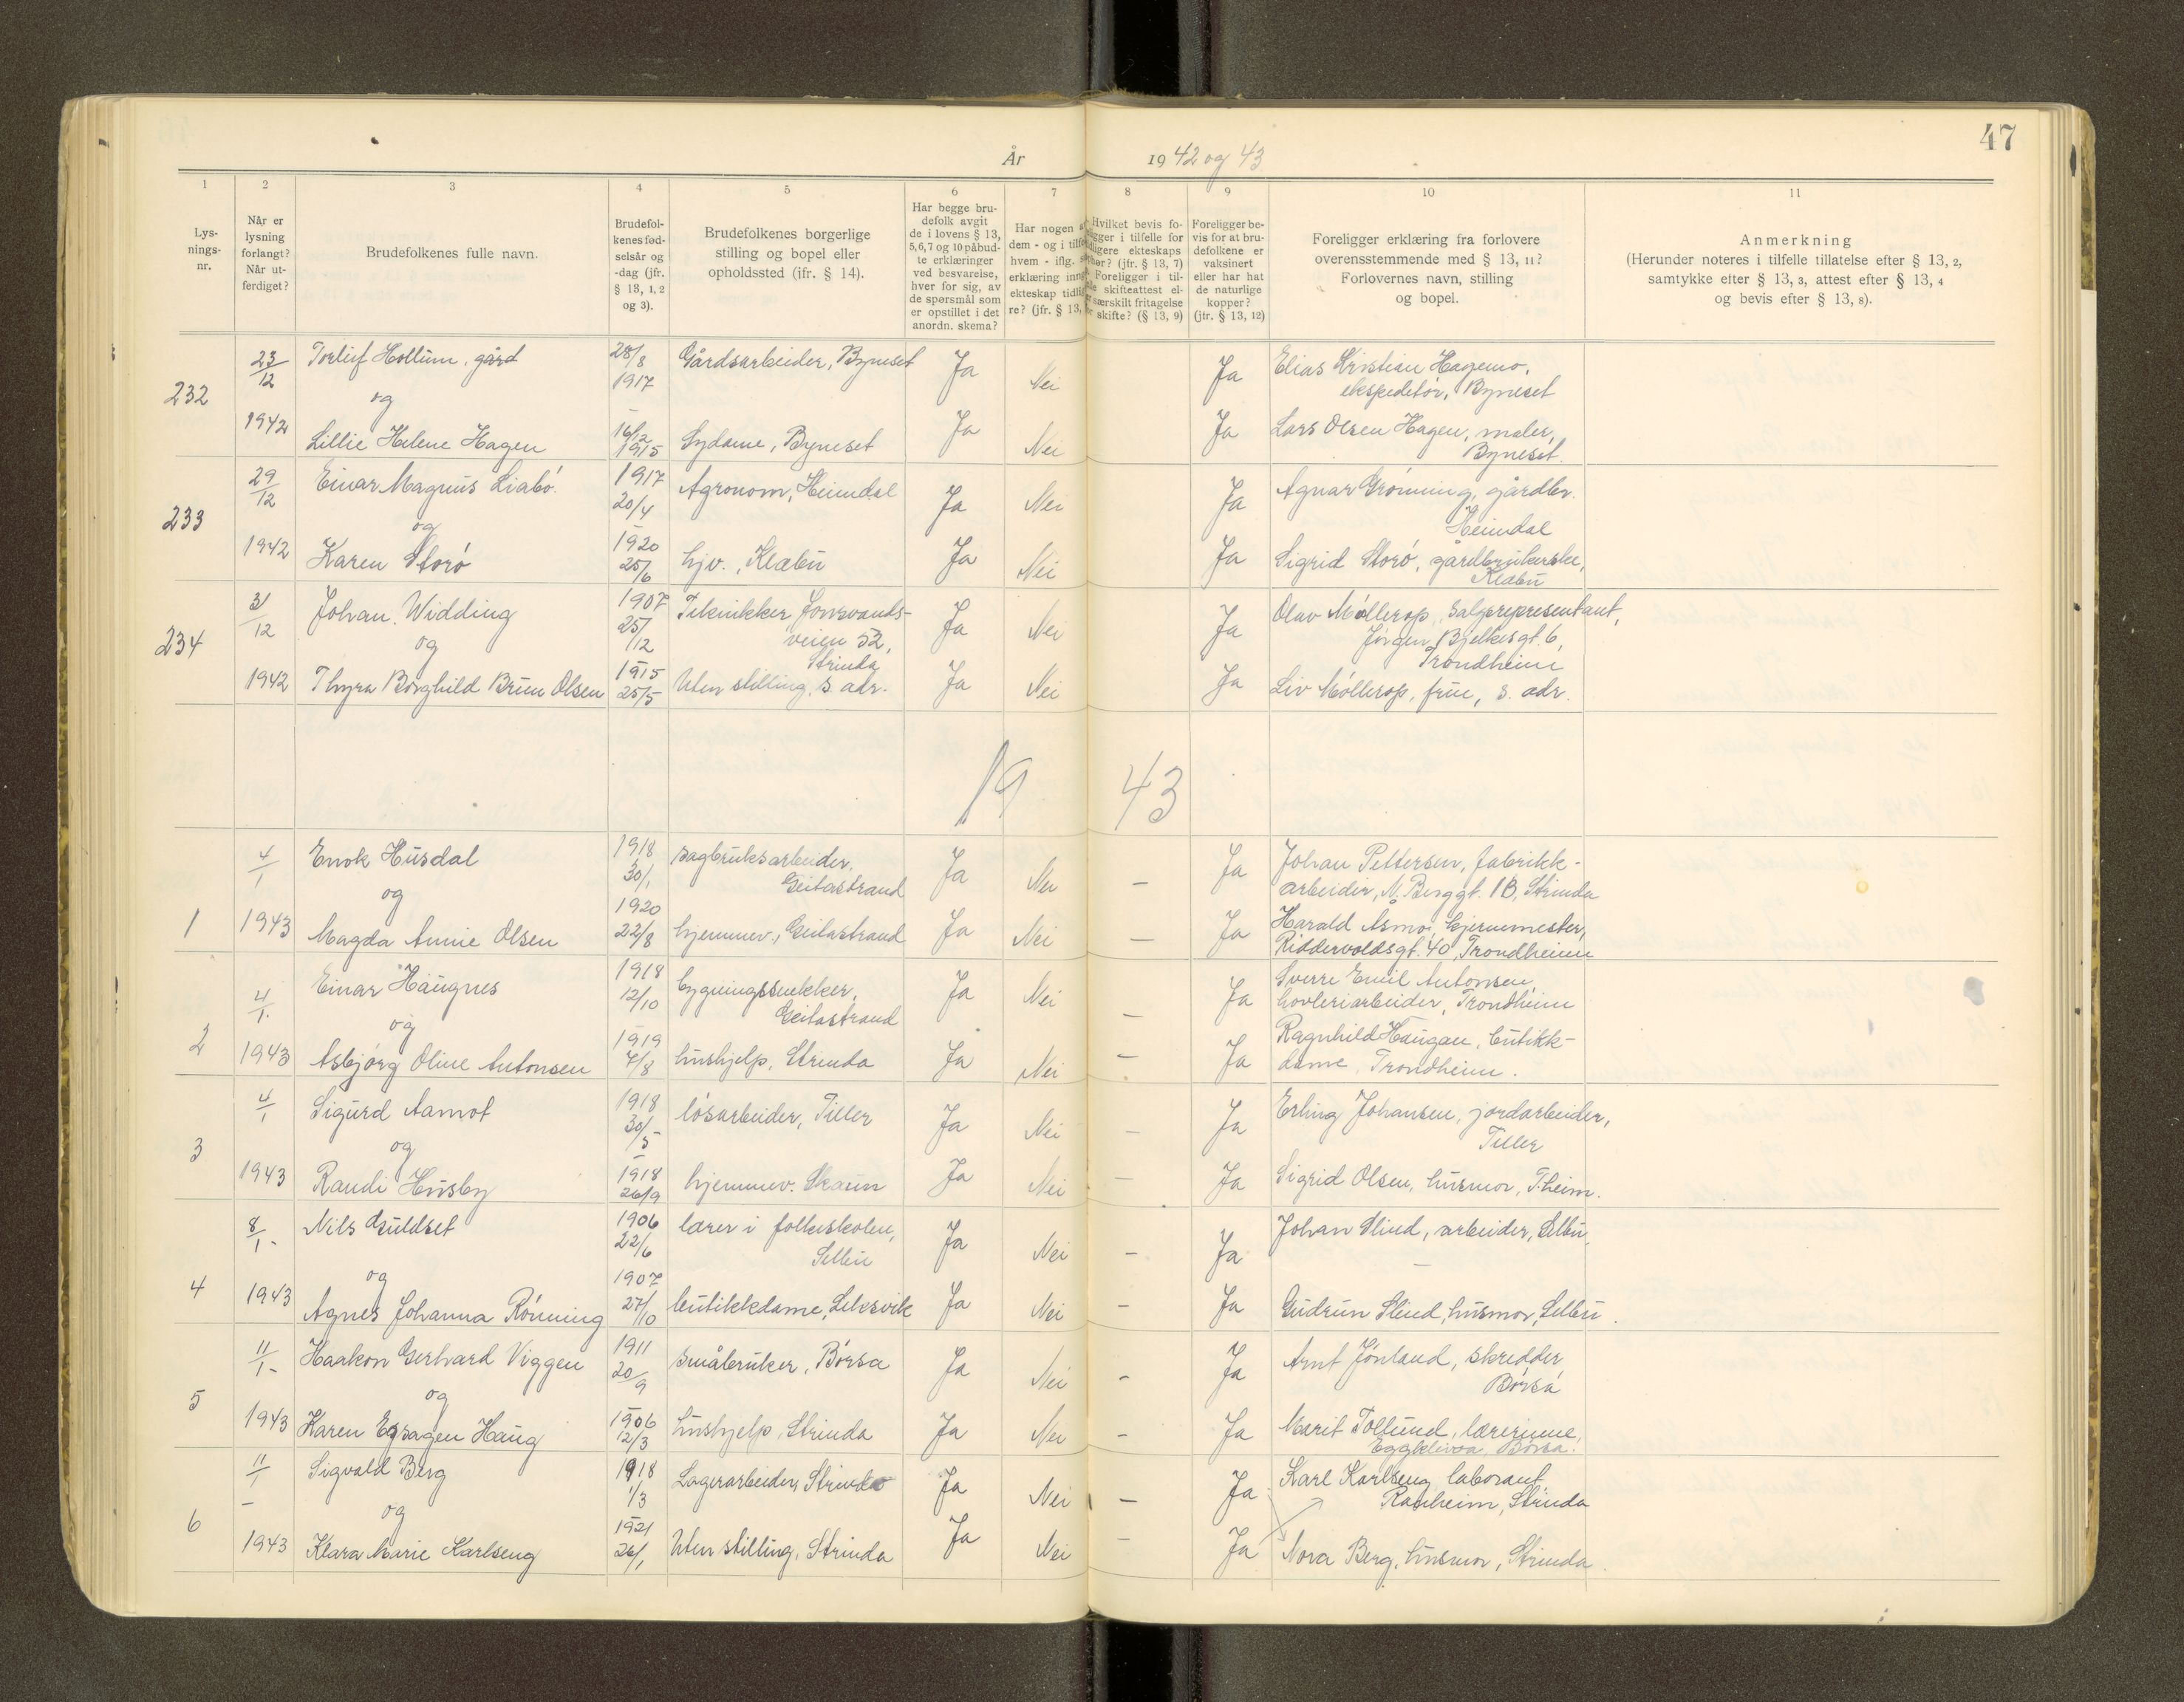 47
År 1942 og 43
1 2 3 4 5 6 7 8 9 10 11
Lys-
nings-
nr.
Når er
lysning
forlangt?
Når ut-
ferdiget?
Brudefolkenes fulle navn.
Brudefol-
kenes fød-
selsår og
-dag (jfr.
§ 13, 1, 2
og 3).
Brudefolkenes borgerlige
stilling og bopel eller
opholdssted (jfr. § 14).
Har begge bru-
defolk avgit
de i lovens § 13,
5,6,7 og 10 påbud-
te erklæringer
ved besvarelse,
hver for sig, av
de spørsmål som
er opstillet i det
anordn. skema?
Har nogen a
dem - og i tilfe
hvem - iflg. s
erklæring inng
ekteskap tidli
re? (jfr. § 13,
Hvilket bevis fo-
ligger i tilfelle for
idligere ekteskaps
ophør? (jfr. § 13, 7)
Foreligger i til-
elle skifteattest el-
er særskilt fritagelse
or skifte? (§ 13, 9)
Foreligger be-
vis for at bru-
defolkene er
vaksinert
eller har hat
de naturlige
kopper?
(jfr. § 13, 12)
Foreligger erklæring fra forlovere
overensstemmende med § 13, 11?
Forlovernes navn, stilling
og bopel.
Anmerkning
(Herunder noteres i tilfelle tillatelse efter § 13, 2,
samtykke efter § 13, 3, attest efter § 13, 4
og bevis efter § 13, 8).
232
23/12
1942
Torleif Hollum, gård
og
Lillie Helene Hagen
28/8
1917
16/12
1915
Gårdsarbeider, Byneset
Sydame, Byneset
Ja Nei Ja
Ja Nei Ja
Elias Kristian Hagemo,
ekspeditør, Byneset
Lars Olsen Hagen, maler,
Byneset.
233
29/12
1942
Einar Magnus Liabø.
og
Karen Storø
1917
20/4
1920
25/6
Agronom, Heimdal
hjv., Klæbu
Ja Nei Ja
Ja Nei Ja
Agnar Grønning, gårdbr.
Heimdal
Sigrid Storø, gårdbrukerske,
Klæbu
234
31/12
1942
Johan Widding
og
Thyra Borghild Bruun Olsen
1907
25/12
1915
25/5
Tekniker, Jonsvands-
veien 52,
Strinda
Uten stilling, s. adr.
Ja Nei Ja
Ja Nei Ja
Olav Møllerop, salgsrepresentant,
Jørgen Bjelkesgt. 6,
Trondheim
Liv Møllerop, frue, s. adr.
1943
1
4/1
1943
Enok Husdal
og
Magda Annie Olsen
1918
30/1
1920
22/8
sagbruksarbeider,
Geitastrand
hjemmev., Geitastrand
Ja Nei – Ja
Ja Nei – Ja
Johan Pettersen, fabrikk-
arbeider, N. Berggt. 1B, Strinda
Harald Åsmo, hjemmester,
Riddervoldsgt. 40, Trondheim
2
4/1.
1943
Einar Haugnes
og
Asbjørg Oline Antonsen
1918
12/10
1919
7/8
bygningssnekker,
Geitastrand
hushjelp, Strinda
Ja Nei – Ja
Ja Nei – Ja
Sverre Emil Antonsen,
høvleriarbeider, Trondheim
Ragnhild Haugan, butikk-
dame, Trondheim.
3
4/1
1943
Sigurd Aamot
og
Randi Husby
1918
30/5
1918
26/9
løsarbeider, Tiller
hjemmev. Skaun
Ja Nei – Ja
Ja Nei – Ja
Erling Johansen, jordarbeider,
Tiller
Sigrid Olsen, husmor, T.heim.
4
8/1-
1943
Nils Guldset
og
Agnes Johanna Rønning
1906
22/6
1907
27/10
lærer i folkeskolen,
Selbu
butikkdame, Leksvik
Ja Nei – Ja
Ja Nei – Ja
Johan Slind, arbeider, Selbu,
Gudrun Slind, husmor, Selbu.
5
11/1-
1943
Haakon Gerhard Viggen
og
Karen Egsagen Haug
1911
20/9
1906
12/3
småbruker, Børsa
hushjelp, Strinda
Ja Nei – Ja
Ja Nei – Ja
Arnt Jønland, skredder
Børsa
Marit Tollund, lærerinne,
Eggkleiva, Børsa.
6
11/1
1943
Sigvald Berg
og
Klara Marie Karlseng
1918
1/3
1921
26/1
Lagerarbeider, Strinda
Uten stilling, Strinda
Ja Nei – Ja
Ja Nei – Ja
Karl Karlseng, laborant,
Ranheim, Strinda
Nora Berg, husmor, Strinda.